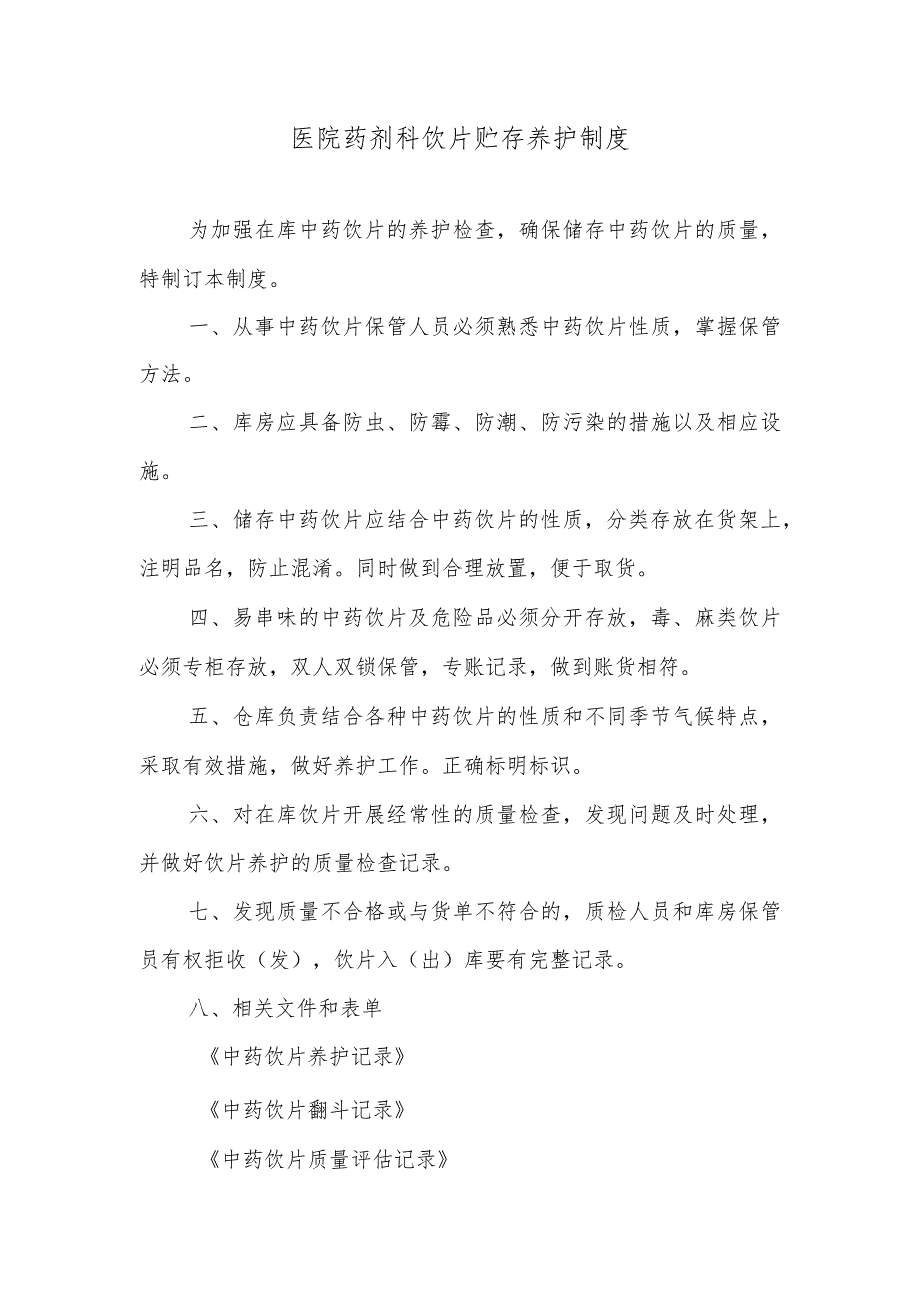 医院药剂科饮片贮存养护制度
为加强在库中药饮片的养护检查，确保储存中药饮片的质量，
特制订本制度。
一、从事中药饮片保管人员必须熟悉中药饮片性质，掌握保管
方法。
二、库房应具备防虫、防霉、防潮、防污染的措施以及相应设
施。
三、储存中药饮片应结合中药饮片的性质，分类存放在货架上，
注明品名，防止混淆。同时做到合理放置，便于取货。
四、易串味的中药饮片及危险品必须分开存放，毒、麻类饮片
必须专柜存放，双人双锁保管，专账记录，做到账货相符。
五、仓库负责结合各种中药饮片的性质和不同季节气候特点，
采取有效措施，做好养护工作。正确标明标识。
六、对在库饮片开展经常性的质量检查，发现问题及时处理，
并做好饮片养护的质量检查记录。
七、发现质量不合格或与货单不符合的，质检人员和库房保管
员有权拒收（发），饮片入（出）库要有完整记录。
八、相关文件和表单
《中药饮片养护记录》
《中药饮片翻斗记录》
《中药饮片质量评估记录》